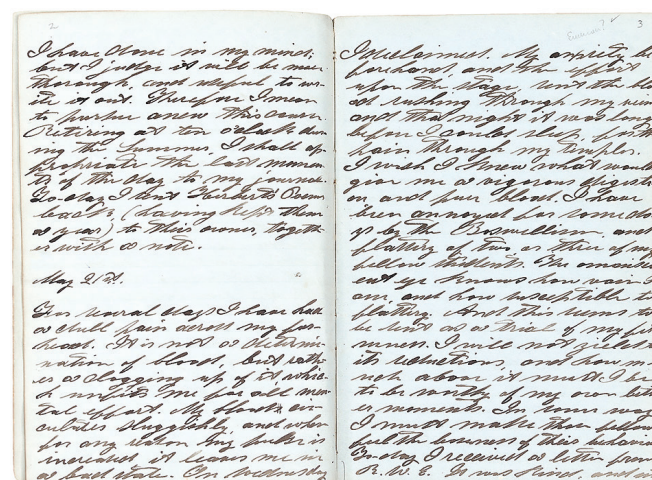 2
I have done in my mind;
but I judge it will be more
thorough, and useful to wr-
ite it out. Therefore I mean
to pursue anew this course.
Retiring at ten o'clock dur-
ing the Summer, I shall ap-
propriate the last momen-
ts of the day to my journal.
To-day I sent Herbert's Poems
back, (having kept them
a year) to their owner, togeth-
er with a note.
May 21st.
For several days I have had
a dull pain across my for-
head. It is not a determi-
nation of blood, but rath-
er a clogging up of it whic-
h unfits me for all men-
tal effort. My blood cir-
culates sluggishly, and when
for any reason my pulse is
increased it leaves me in
a bad state. On Wednesday
3
I declaimed. My anxiety be
forehand, and the effort
upon the stage, sent the blo
od rushing through my veins
and that night it was long
before I could sleep, for the
pain through my temples.
I wish I knew what would
give me a vigorous digesti
on and pure blood. I have
been annoyed for some da
ys by the Boswellism and
flattery of two or three of my
fellow students. The omnisci
ent eye knows how vain I
am, and how susceptible to
flattery. And this seems to
be sent as a trial of my fir
mness. I will not yield to
its seductions, and how m
uch above it must I be
to be worthy of my own bett
er moments. In some way
I must make these fellows
feel the baseness of their behavior
To-day I received a letter from
R. W. E. It was kind, and